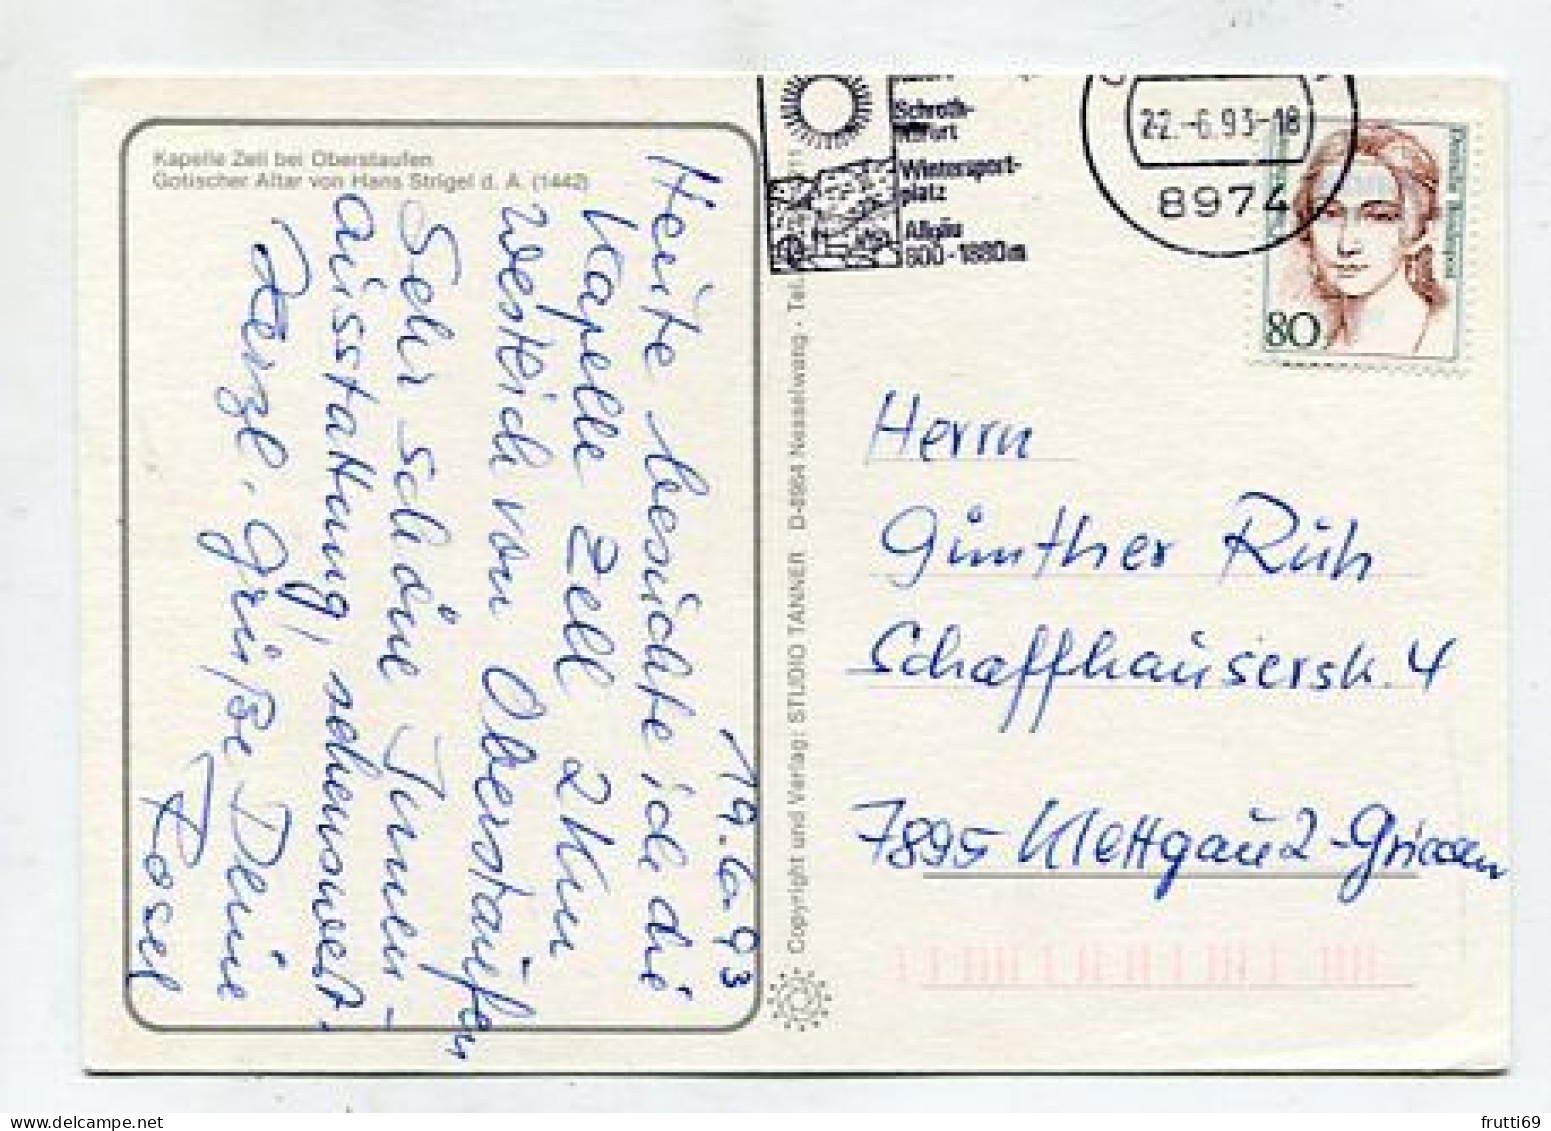 Kapelle Zell bei Oberstaufen
Gotischer Altar von Hans Strigel d. Ä. (1442)
19.6.93
Heute besuchte ich die
Kapelle Zell 2 Km
westlich von Oberstaufen
Sehr schöne Innen-
ausstattung, sehenswert.
Herzl. Grüße Deine
Rosel
Copyright und Verlag: STUDIO TANNER D-8964 Nesselwang · Tel.
Schroth-
kurort
Wintersport-
platz
Allgäu
800-1880m
22.-6.93-18
8974
Deutsche Bundespost
80
Herrn
Günther Rüh
Schaffhauserstr. 4
7895 Klettgau 2-Griessen
frutti69